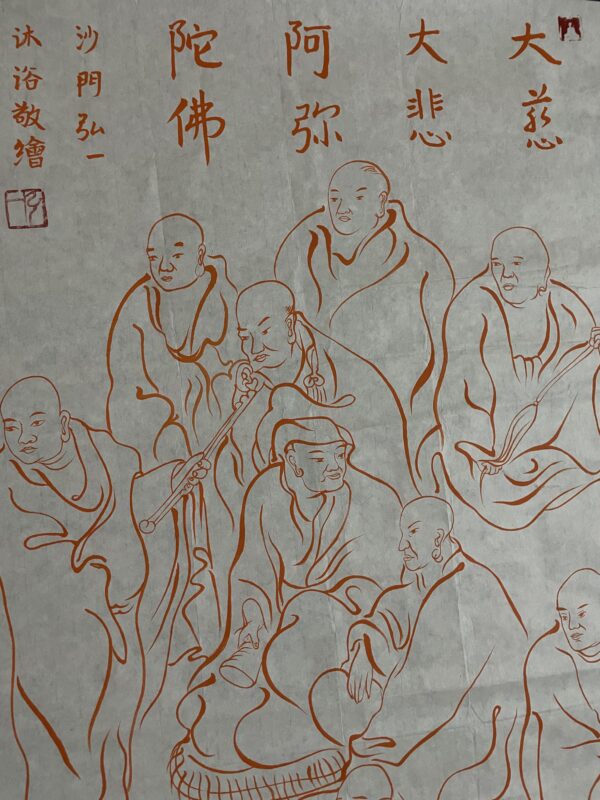 大慈
大悲
阿弥
陀佛
沙門弘一
沐浴敬繪